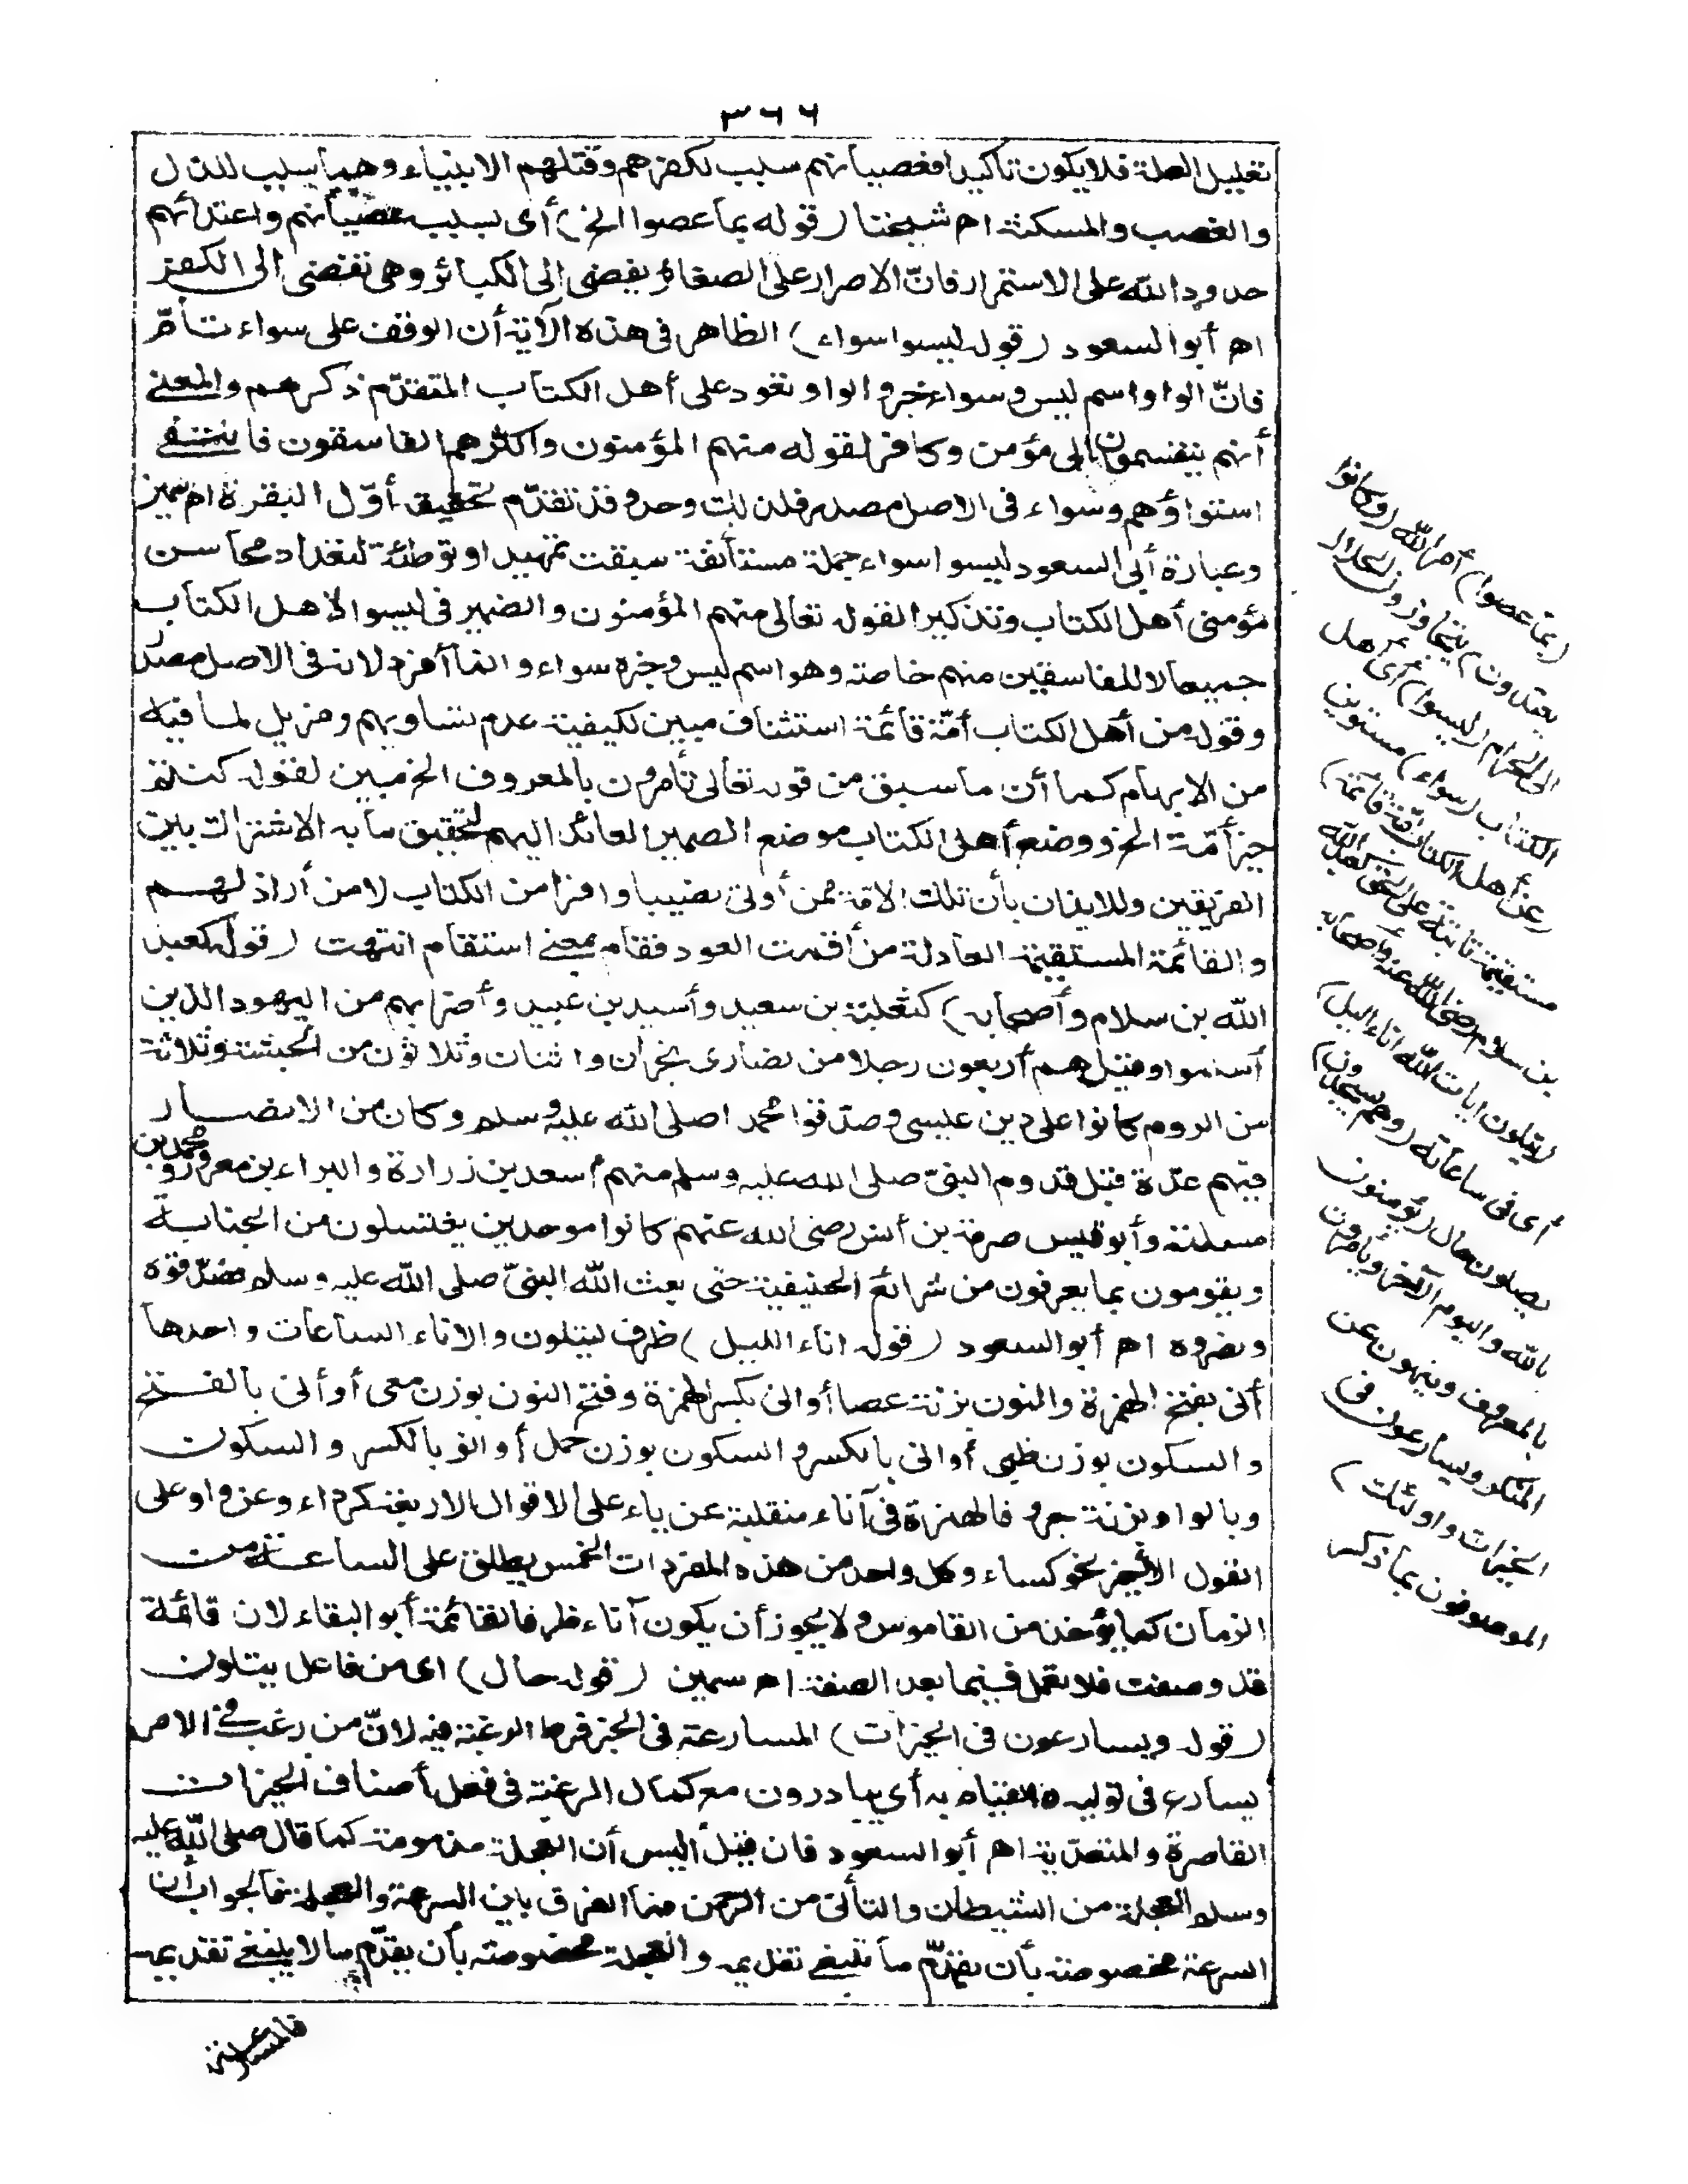 ٣٦٦
تعليل العلة فلا يكون تأكيدا فعصيانهم سبب لكفرهم وقتلهم الانبياء وهما سبب للذل
والغضب والمسكنة اه شيخنا (قوله بما عصوا الخ) أى بسبب عصيانهم واعتدائهم
حدود الله على الاستمرار فانّ الاصرار على الصغائر يفضى الى الكبائر وهى تفضى الى الكفر
اه أبو السعود (قوله ليسوا سواء) الظاهر فى هذه الآية أن الوقف على سواء تامّ
فانّ الواو اسم ليس وسواء خبر والواو تعود على أهل الكتاب المتقدّم ذكرهم والمعنى
أنهم ينقسمون الى مؤمن وكافر لقوله منهم المؤمنون واكثرهم الفاسقون فانتفى
استواؤهم وسواء فى الاصل مصدر فلذلك وحد وقد تقدّم تحقيقه أوّل البقرة اه سمين
وعبارة أبى السعود ليسوا سواء جملة مستأنفة سيقت تمهيدا وتوطئة لتعداد محاسن
مؤمنى أهل الكتاب وتذكير القوله تعالى منهم المؤمنون والضمير فى ليسوا لاهل الكتاب
جميعا لا للفاسقين منهم خاصة وهو اسم ليس وخبره سواء وانما أفرد لانه فى الاصل مصدر
وقوله من أهل الكتاب أمّة قائمة استئناف مبين لكيفية عدم تساويهم ومزيل لما فيه
من الابهام كما أن ما سبق من قوله تعالى تأمرون بالمعروف الخ مبين لقوله كنتم
خير أمّة الخ ووضع أهل الكتاب موضع الضمير العائد اليهم لتحقيق ما به الاشتراك بين
الفريقين وللايذان بأن تلك الامّة ممن أوتى نصيبا وافرا من الكتاب لا من أراذلهم
والقائمة المستقيمة العادلة من أقمت العود فقام بمعنى استقام انتهت (قوله كعبد
الله بن سلام وأصحابه) كثعلبة بن سعيد وأسيد بن عبيد وأضرابهم من اليهود الذين
أسلموا وقيل هم أربعون رجلا من نصارى نجران واثنان وثلاثون من الحبشة وثلاثة
من الروم كانوا على دين عيسى وصدّقوا محمدا صلى الله عليه وسلم وكان من الانصار
فيهم عدّة قبل قدوم النبىّ صلى الله عليه وسلم منهم أسعد بن زرارة والبراء بن معرور ومحمد بن
مسلمة وأبو قيس صرمة بن أنس رضى الله عنهم كانوا موحدين يغتسلون من الجنابة
ويقومون بما يعرفون من شرائع الحنيفية حتى بعث الله النبىّ صلى الله عليه وسلم فصدّقوه
ونصروه اه أبو السعود (قوله اناء الليل) ظرف ليتلون والاناء الساعات واحدها
أنى بفتح الهمزة والنون بزنة عصا أو انى بكسر الهمزة وفتح النون بوزن معى أو أنى بالفتح
والسكون بوزن ظبى أو انى بالكسر والسكون بوزن حمل أو انو بالكسر والسكون
وبالواو بزنة جرو فالهمزة فى آناء منقلبة عن ياء على الاقوال الاربعة كرداء وعن واو على
القول الأخير نحو كساء وكل واحد من هذه المفردات الخمس يطلق على الساعة من
الزمان كما يؤخذ من القاموس ولا يجوز أن يكون آناء ظرفا لقائمة أبو البقاء لان قائمة
قد وصفت فلا تعمل فيما بعد الصفة اه سمين (قوله حال) اى من فاعل يتلون
(قوله ويسارعون فى الخيرات) المسارعة فى الخير فرط الرغبة فيه لانّ من رغب فى الامر
يسارع فى توليه والقيام به أى يبادرون مع كمال الرغبة فى فعل أصناف الخيرات
القاصرة والمتعدّية اه أبو السعود فان قيل أليس أن العجلة مذمومة كما قال صلى الله عليه
وسلم العجلة من الشيطان والتأنى من الرحمن فما الفرق بين السرعة والعجلة فالجواب أن
السرعة مخصوصة بأن يقدّم ما ينبغى تقديمه والعجلة مخصوصة بأن يقدّم ما لا ينبغى تقديمه
فالمسارعة
(بما عصوا) أمر الله (وكانوا
يعتدون) يتجاوزون الحلال
الى الحرام (ليسوا) أى أهل
الكتاب (سواء) مستوين
(من أهل الكتاب أمّة قائمة)
مستقيمة ثابتة على الحق كعبد الله
بن سلام رضى الله عنه وأصحابه
(يتلون ايات الله اناء الليل)
أى فى ساعاته (وهم يسجدون)
يصلون حال (يؤمنون
بالله واليوم الآخر ويأمرون
بالمعروف وينهون عن
المنكر ويسارعون فى
الخيرات واولئك)
الموصوفون بما ذكر